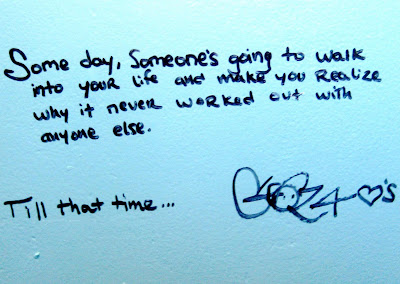 Some day, Someone's going to walk
into your life and make you Realize
why it never worked out with
anyone else.
Till that time...